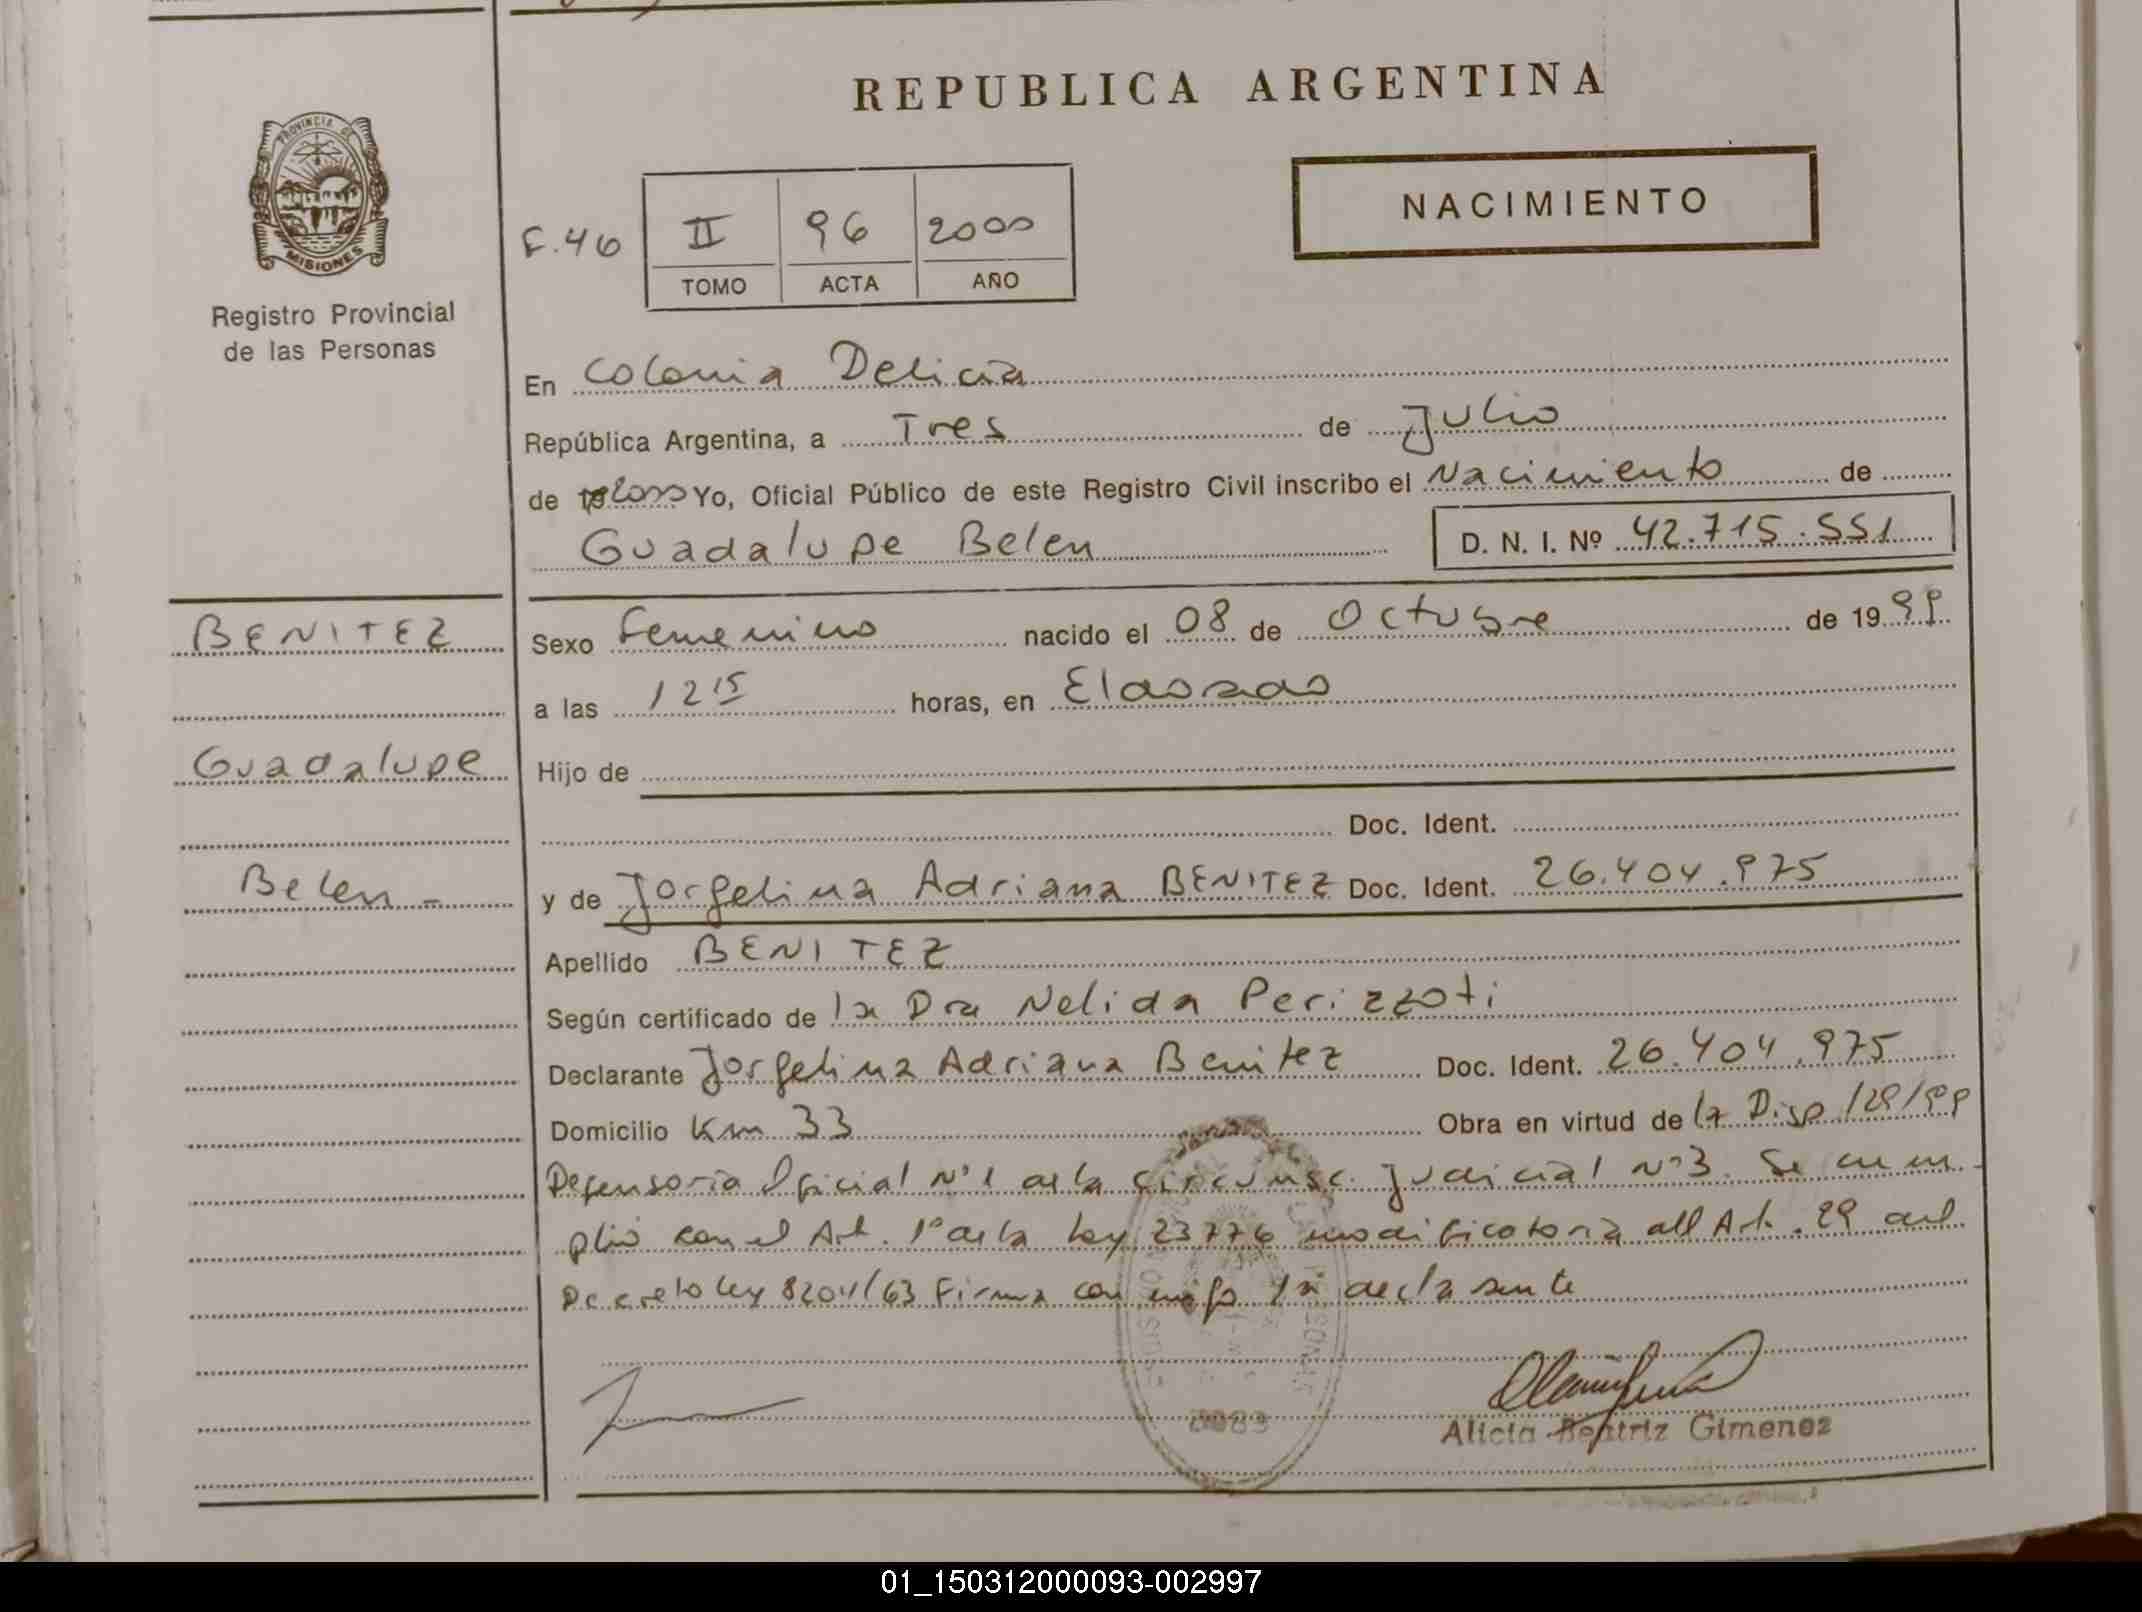 REPUBLICA ARGENTINA
PROVINCIA DE
MISIONES
Registro Provincial
de las Personas
F.46
II 96 2000
TOMO ACTA AÑO
NACIMIENTO
En Colonia Delicia
República Argentina, a Tres de Julio
de 2000 Yo, Oficial Público de este Registro Civil inscribo el Nacimiento de
Guadalupe Belen D. N. I. Nº 42.715.551
BENITEZ
Guadalupe
Belen -
Sexo Femenino nacido el 08 de Octubre de 1999
a las 12 15 horas, en Eldorado
Hijo de
Doc. Ident.
y de Jorgelina Adriana BENITEZ Doc. Ident. 26.404.975
Apellido BENITEZ
Según certificado de la Dra Nelida Perizzoti
Declarante Jorgelina Adriana Benitez Doc. Ident. 26.404.975
Domicilio Km 33 Obra en virtud de la Disp 129/99
Defensoria Oficial Nº1 de la Circunsc. Judicial Nº3. Se cum-
plio con el Art. 1º de la Ley 23776 modificatoria del Art. 29 del
Decreto Ley 8204/63 Firma conmigo la declarante
0083
Alicia Beatriz Gimenez
01_150312000093-002997